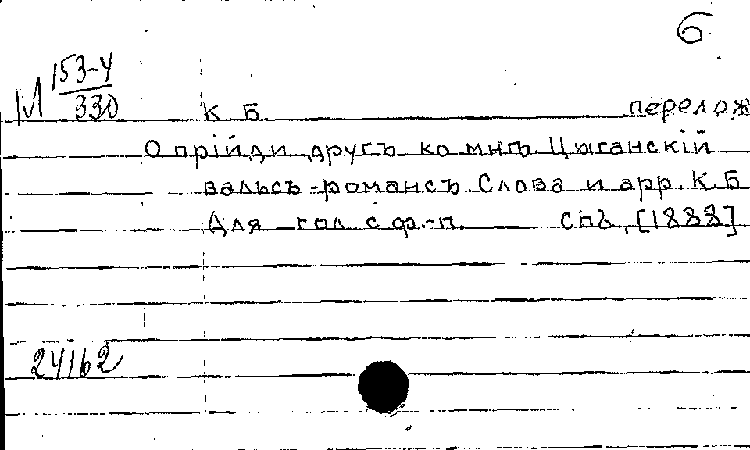 б
М 153-4
330
К Б. перелож
О прiйди другъ ко мнѣ Цыганскiй
вальсъ-романсъ Слова и арр. К Б
Для гол с ф.-п. Спб, [1888]
24162